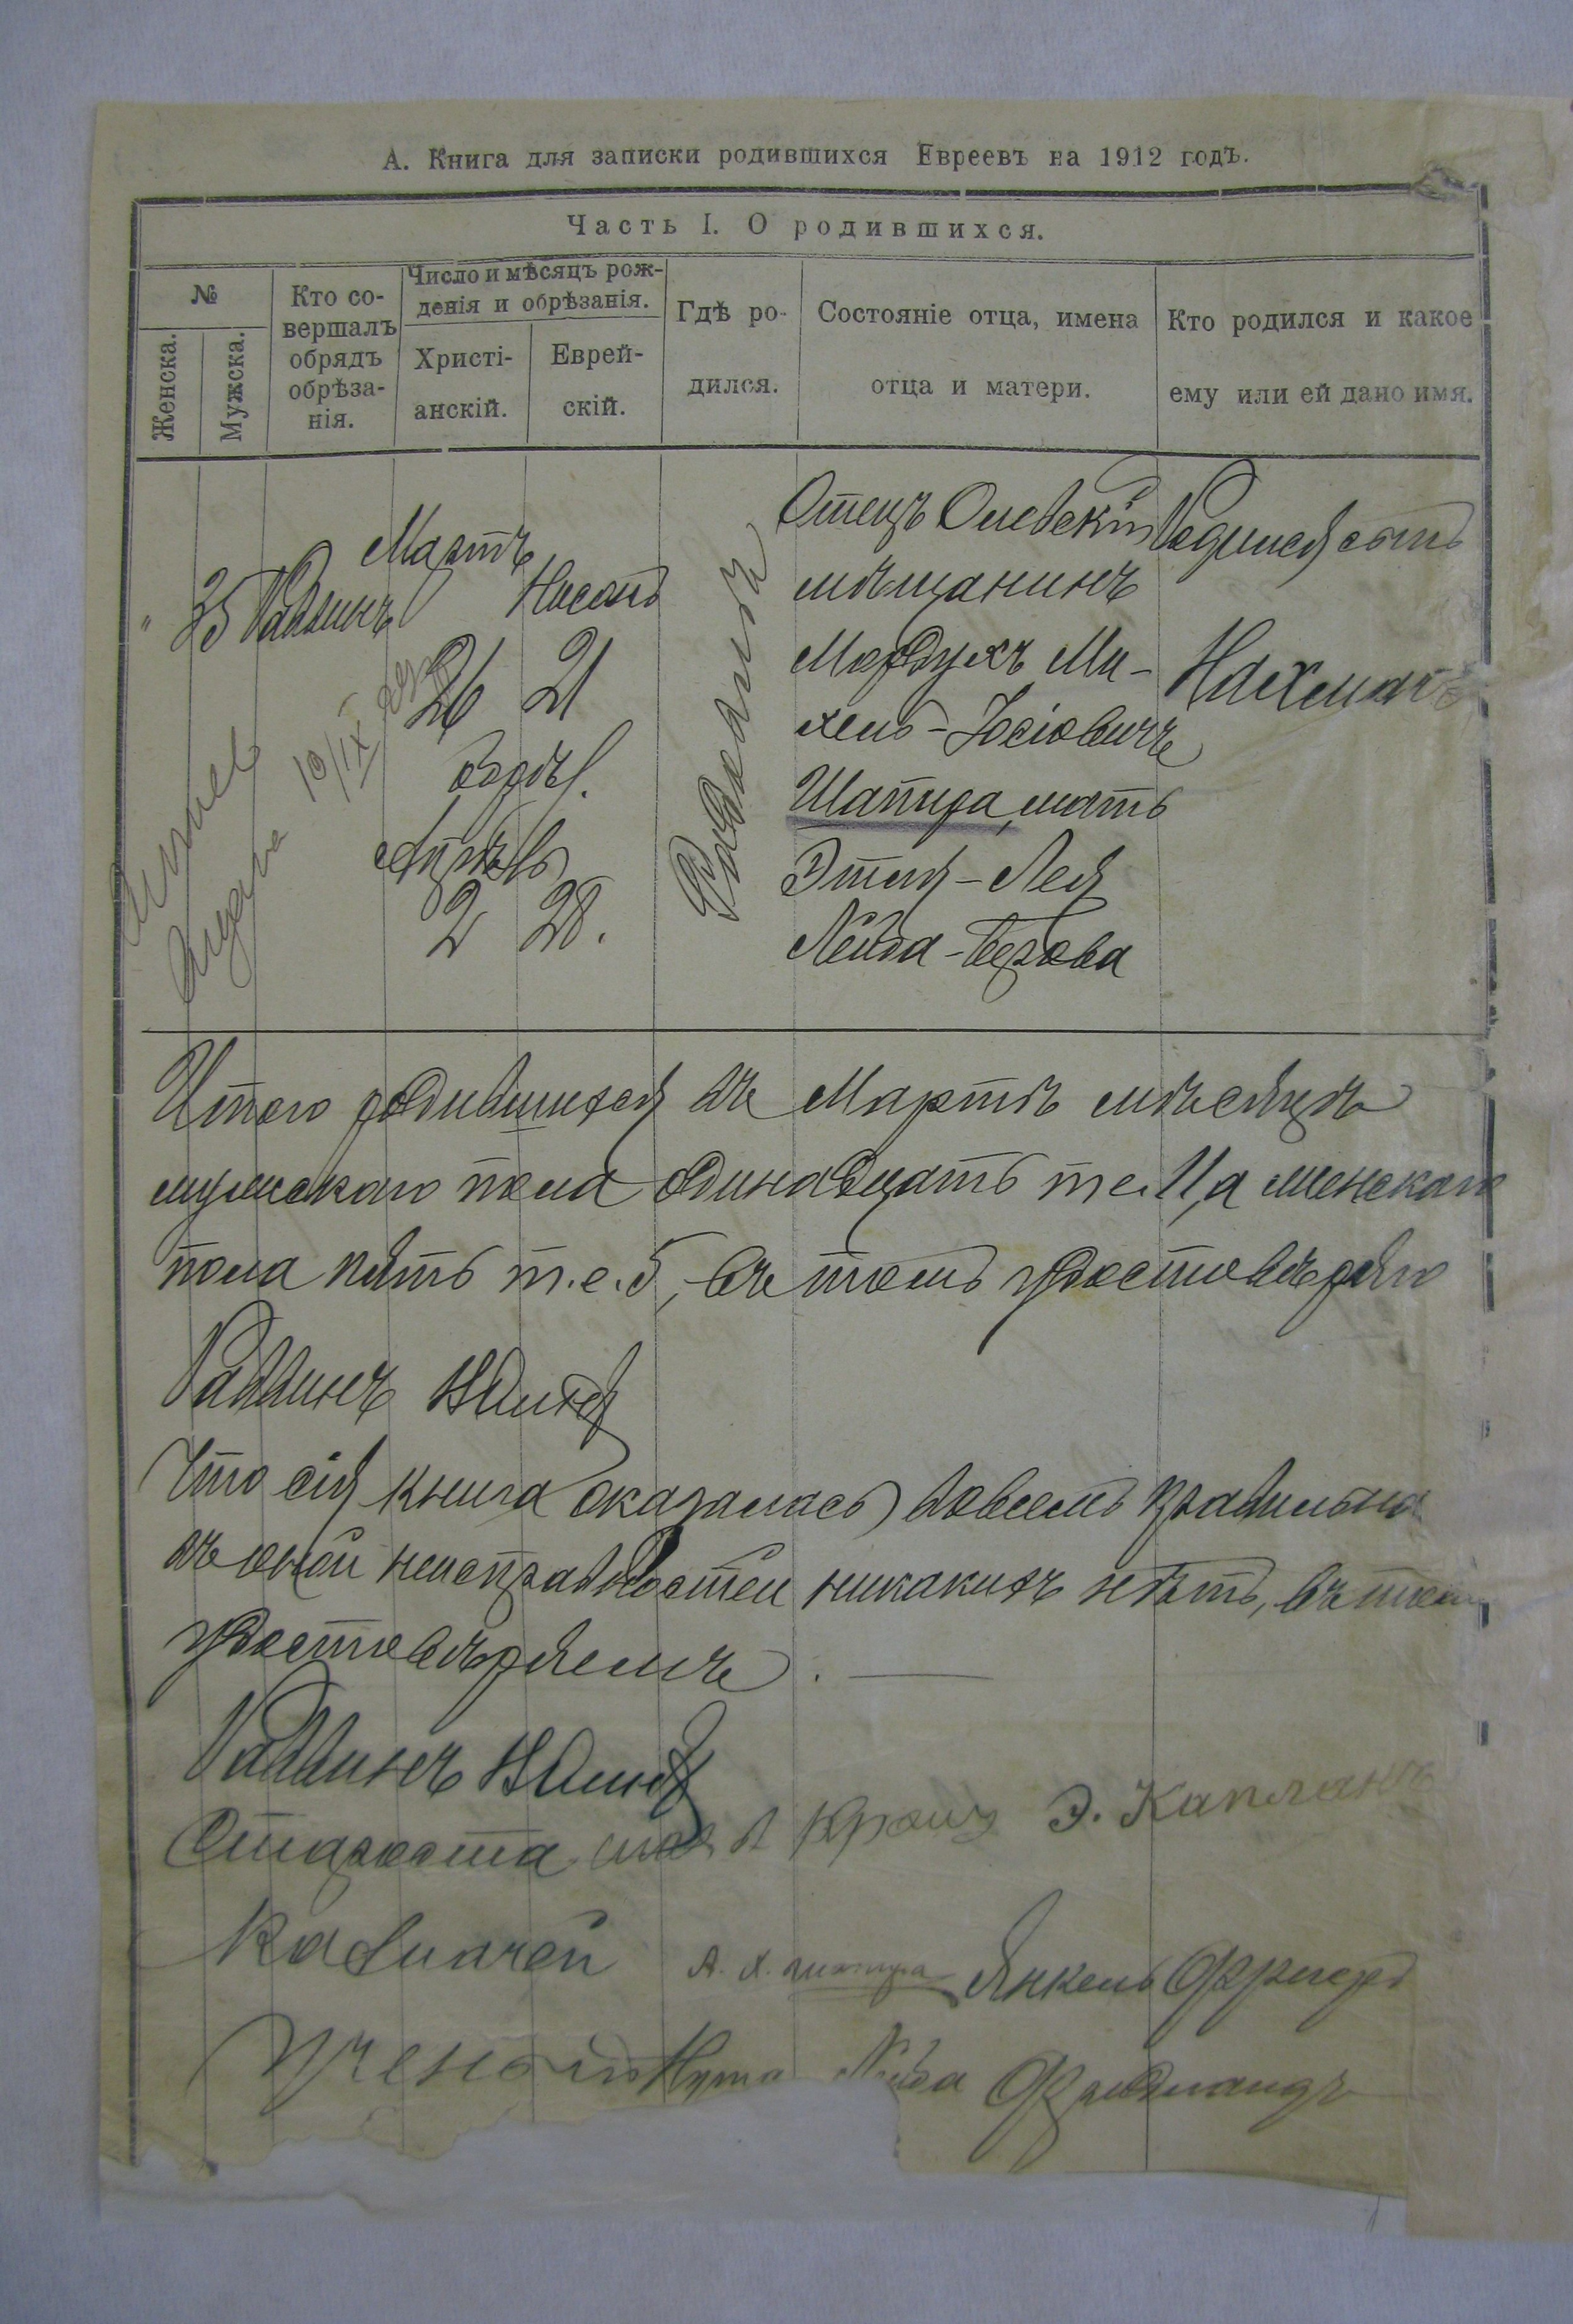 А. Книга для записки родившихся Евреевъ на 1912 годъ.
Часть I. О родившихся.
№
Женска.
Мужска.
Кто со-
вершалъ
обрядъ
обрѣза-
нія.
Число и мѣсяцъ рож-
денія и обрѣзанія.
Христі-
анскій.
Еврей-
скій.
Гдѣ ро-
дился.
Состояніе отца, имена
отца и матери.
Кто родился и какое
ему или ей дано имя.
" 35 Раввинъ
Мартъ
26
Апрѣль
2
Нисанъ
21
28.
Отецъ Олевскій
мѣщанинъ
Мордухъ Ми-
хель-Іосіовичъ
Шапира, мать
Этля-Лея
Лейба-Берова
Родился сынъ
Нахманъ
10/IX
Итого родившихся въ Мартѣ мѣсяцѣ
мужскаго пола одинадцать т.е. 11, а женскаго
пола пять т.е. 5, въ томъ удостовѣряю
Раввинъ
Что сія книга оказалась вовсемъ правильна
въ оной неисправностей никакихъ нѣтъ, въ томъ
удостовѣряемъ.
Раввинъ
Староста Э. Капланъ
Казначей А. Х. Янкель
Ученой Нута Лейба Фридландъ